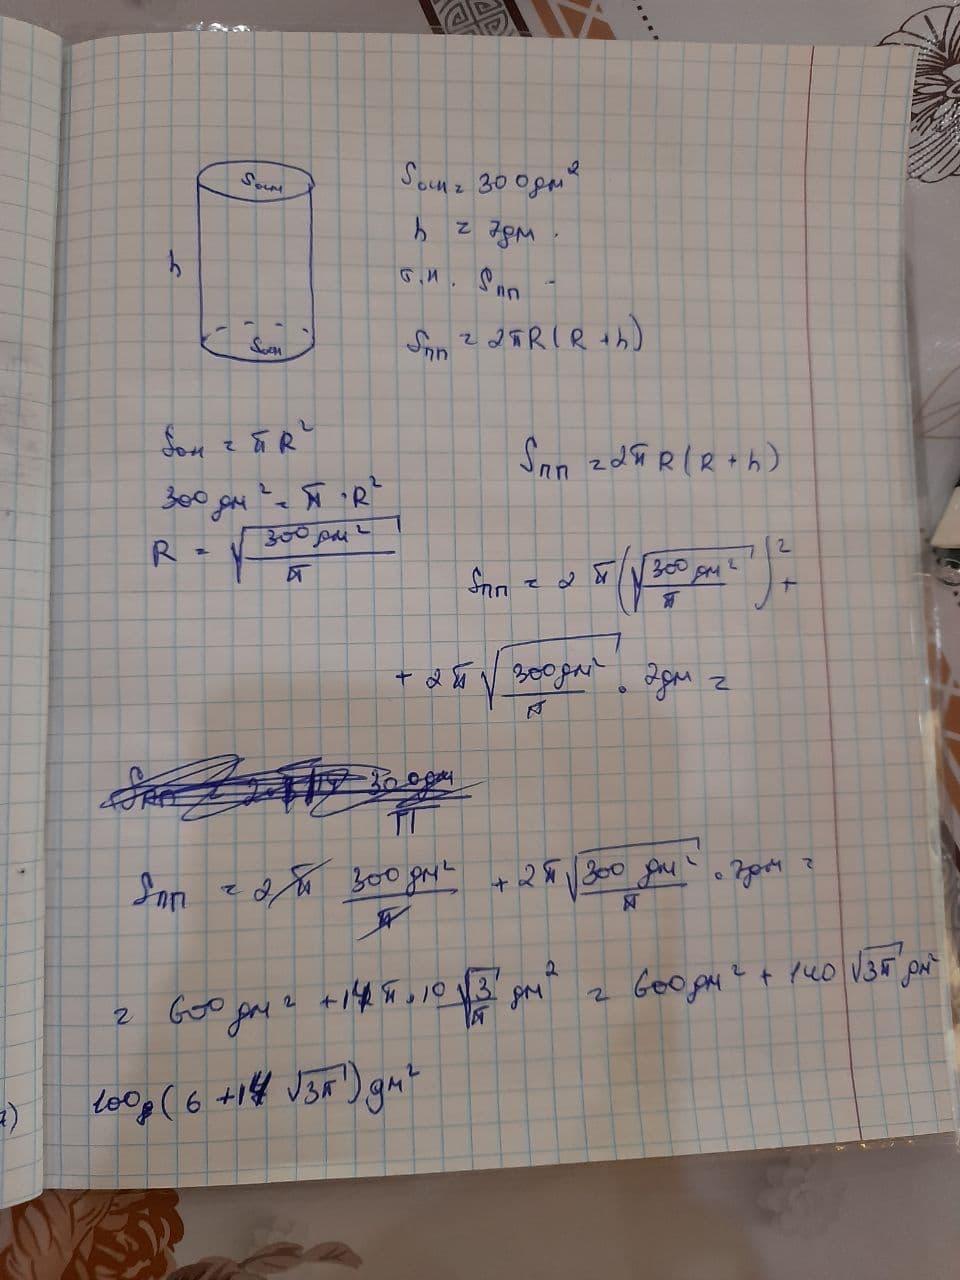 Sосн
h
Sосн
Sосн = 300 дм²
h = 7дм.
т.н. Sпп -
Sпп = 2πR(R + h)
Sосн = πR²
300 дм² = π · R²
R = √(300 дм²/π)
Sпп = 2πR(R + h)
Sпп = 2π(√(300 дм²/π))² +
+ 2π√(300дм²/π) · 7дм =
Sпп = 2π 300 дм²/π + 2π√(300 дм²/π) · 7дм =
= 600 дм² + 14π · 10√(3/π) дм² = 600дм² + 140√3π дм²
100 (6 + 14 √3π) дм²